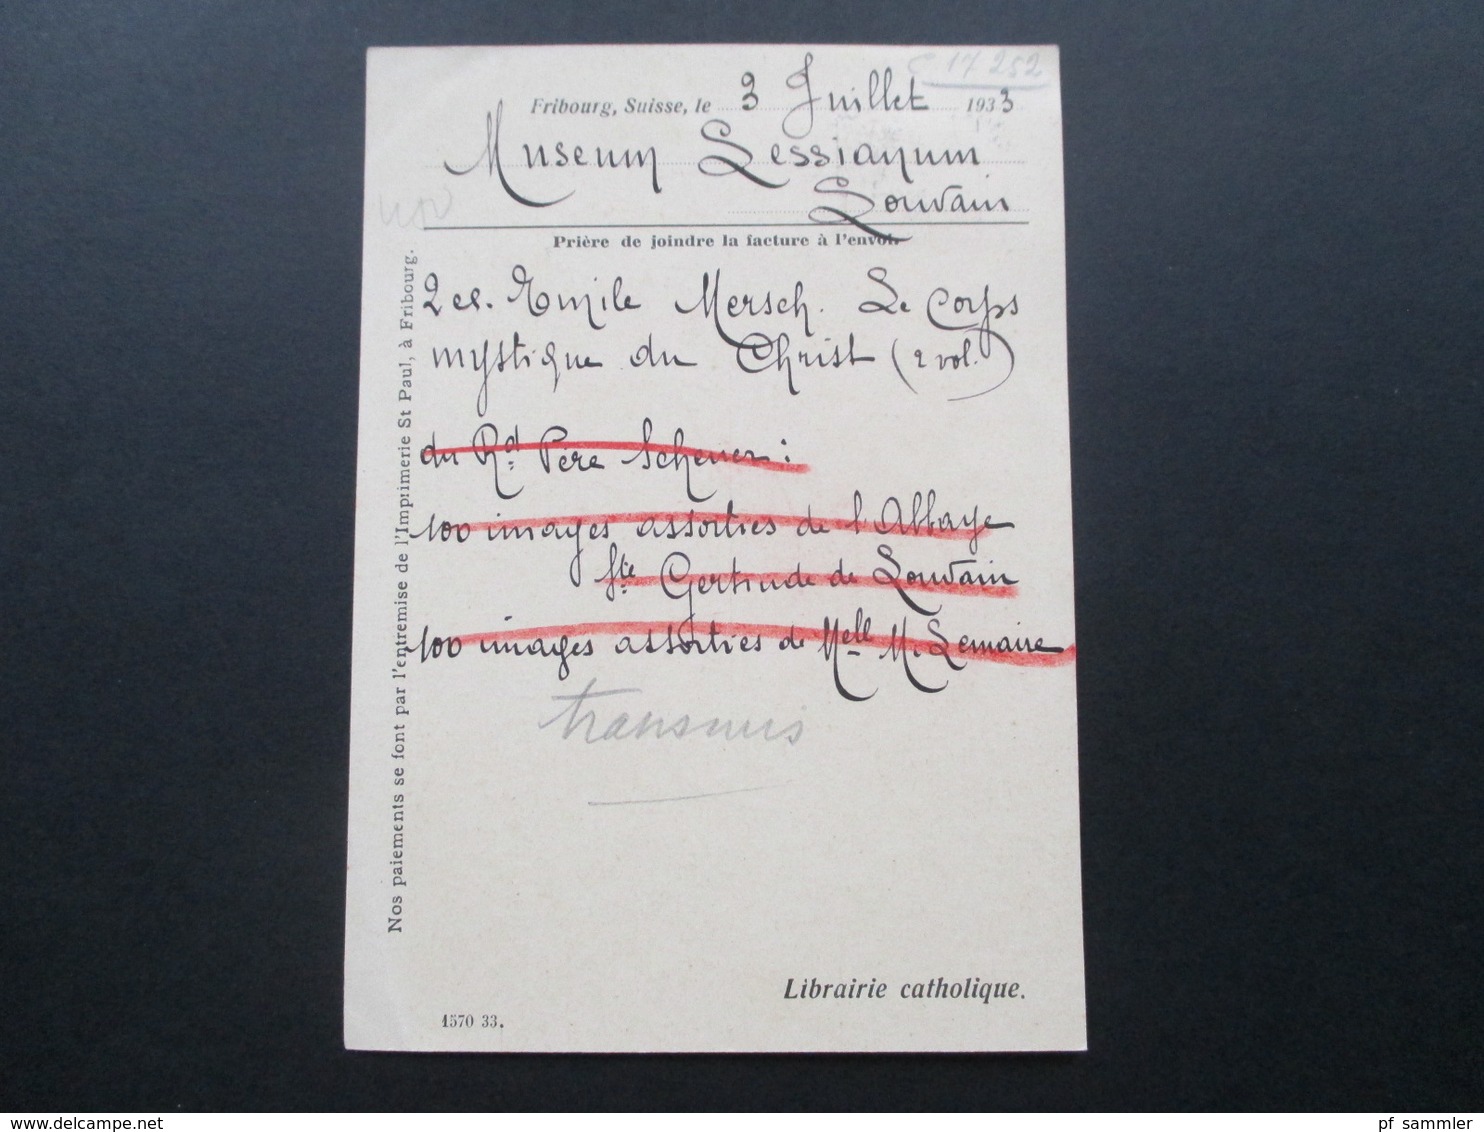 C 17 252
Fribourg, Suisse, le 3 Juillet 1933
Museum Lessianum
Louvain
Prière de joindre la facture à l'envoi.
2 ex. Emile Mersch. Le Corps
mystique du Christ (2 vol.)
du Rd Père Scheuer:
100 images assorties de l'Abbaye
Ste Gertrude de Louvain
100 images assorties de Mell M. Lemaire
transmis
Librairie catholique.
1570 33.
Nos paiements se font par l'entremise de l'Imprimerie St Paul, à Fribourg.
pf sammler